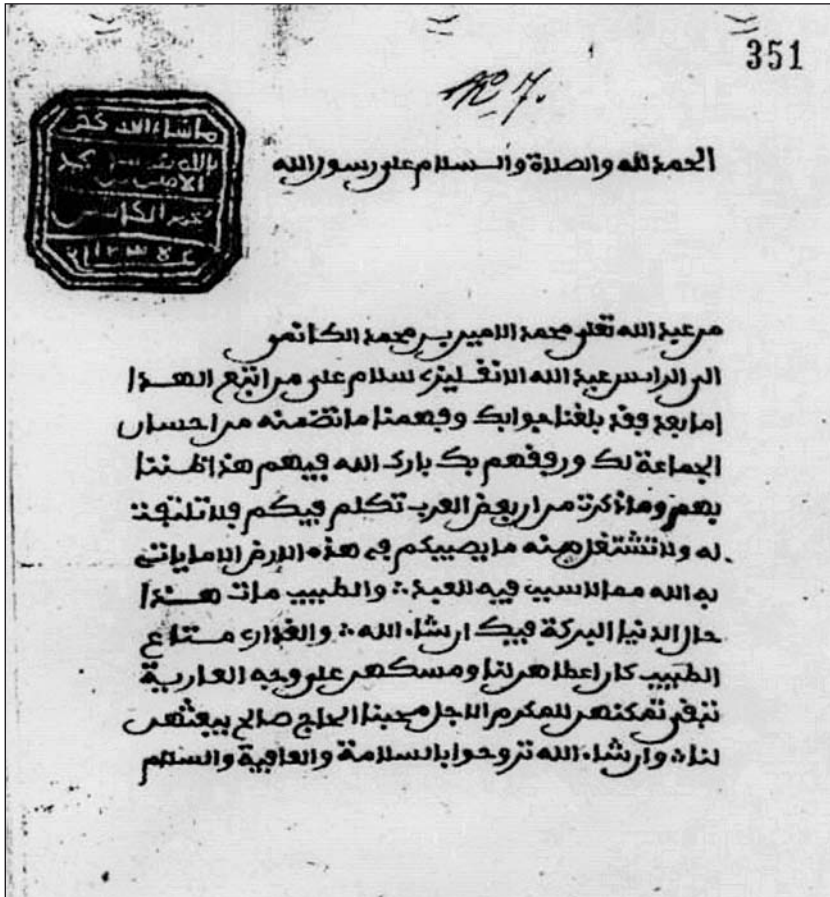 351
No 7.
ما شاء الله كفى
بالله
الامين بن
محمد الكانمي
الحمد لله والصلاة والسلام على رسول الله
من عبد الله تعلى محمد الامين بن محمد الكانمي
الى الرايس عبد الله الانقليزي سلام على من اتبع الهدا
اما بعد فقد بلغنا جوابك وفهمنا ما تضمنه من احسان
الجماعة لك ورفقهم بك بارك الله فيهم هذا ظننا
بهم وما ذكرت من ان بعض العرب تكلم فيكم فلا تلتفت
له ولا تشتغل منه ما يصيبكم في هذه الارض الا ما ياتي
به الله مما لا سبب فيه للعبد والطبيب مات هذا
حال الدنيا البركة فيك ان شاء الله والغدارى متاع
الطبيب كان اعطاهن لنا ومسكهن على وجه العارية
نبغي تمكنهن للمكرم الاجل محبنا الحاج صالح يبعثهن
لنا وان شاء الله تروحوا بالسلامة والعافية والسلام